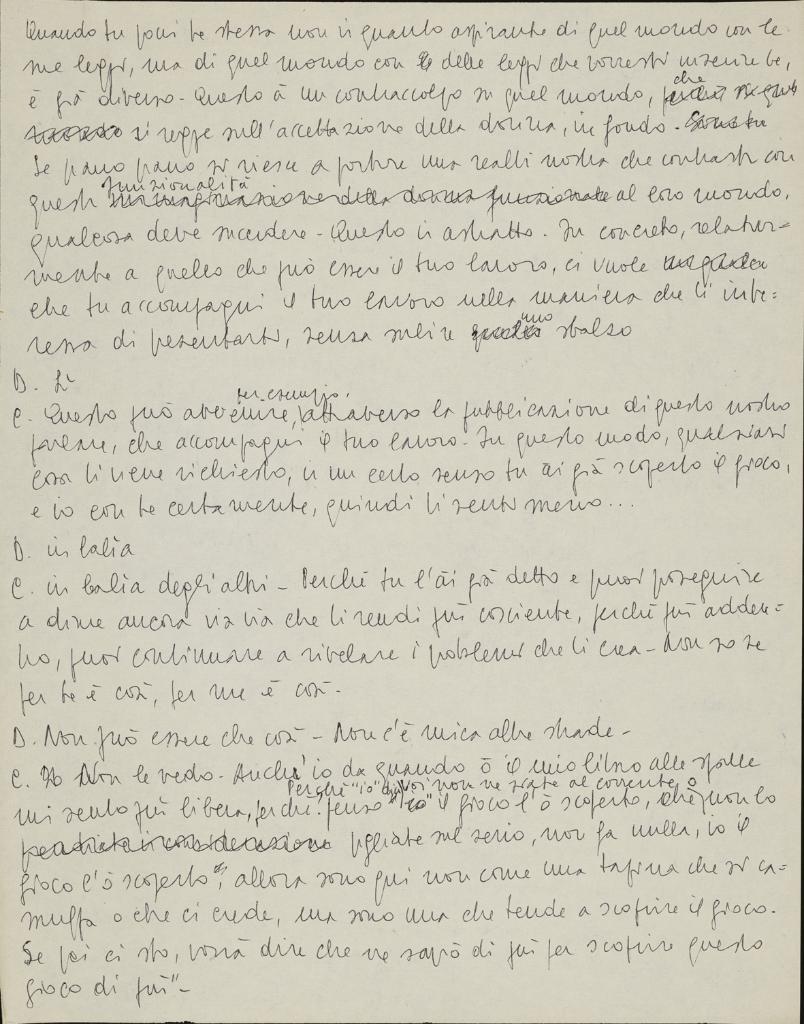 Quando tu poni te stessa non in quanto aspirante di quel mondo con le
sue leggi, ma di quel mondo con delle leggi che vorresti inserire te,
è già diverso - Questo à un contraccolpo su quel mondo, che
si regge sull'accettazione della donna, in fondo -
Se piano piano si riesce a portare una realtà nostra che contrasti con
questa funzionalità al loro mondo,
qualcosa deve succedere - Questo in astratto. In concreto, relativa=
mente a quello che può essere il tuo lavoro, ci vuole
che tu accompagni il tuo lavoro nella maniera che ti inte=
ressa di presentarti, senza subire uno sbalzo
D. Sì
C. Questo può avvenire, per esempio, attraverso la pubblicazione di questo nostro
parlare, che accompagni il tuo lavoro - In questo modo, qualsiasi
cosa ti viene richiesto, in un certo senso tu ài già scoperto il gioco,
e io con te certamente, quindi ti senti meno...
D. in balia
C. in balia degli altri - Perché tu l'ài già detto e puoi proseguire
a dirne ancora via via che ti rendi più cosciente, perché più adden=
tro, puoi continuare a rivelare i problemi che ti crea - Non so se
per te è così, per me è così -
D. Non può essere che così - Non c'è mica altre strade -
C. Non le vedo - Anch'io da quando ò il mio libro alle spalle
mi sento più libera, perché penso "io il gioco l'ò scoperto, che non lo
Perché "io" voi non ne siate al corrente o
pigliate sul serio, non fa nulla, io il
gioco l'ò scoperto", allora sono qui non come una tapina che si ca=
muffa o che ci crede, ma sono una che tende a scoprire il gioco.
Se poi ci sto, vorrà dire che ne saprò di più per scoprire questo
gioco di più" -